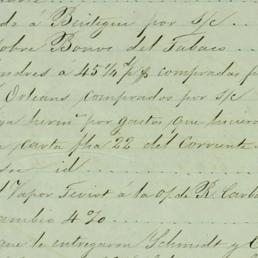 á Beistegui por s/c
sobre Bonos del Tabaco
ondres á 45 1/4 % comprados p
Orleans comprados por s/c
ya herm.º por gastos que hiciero
carta fha 22 del corriente
id
l Vapor Teviot á la o/ de R. Carba
ambio 4%
que le entregaron Schmidt y C